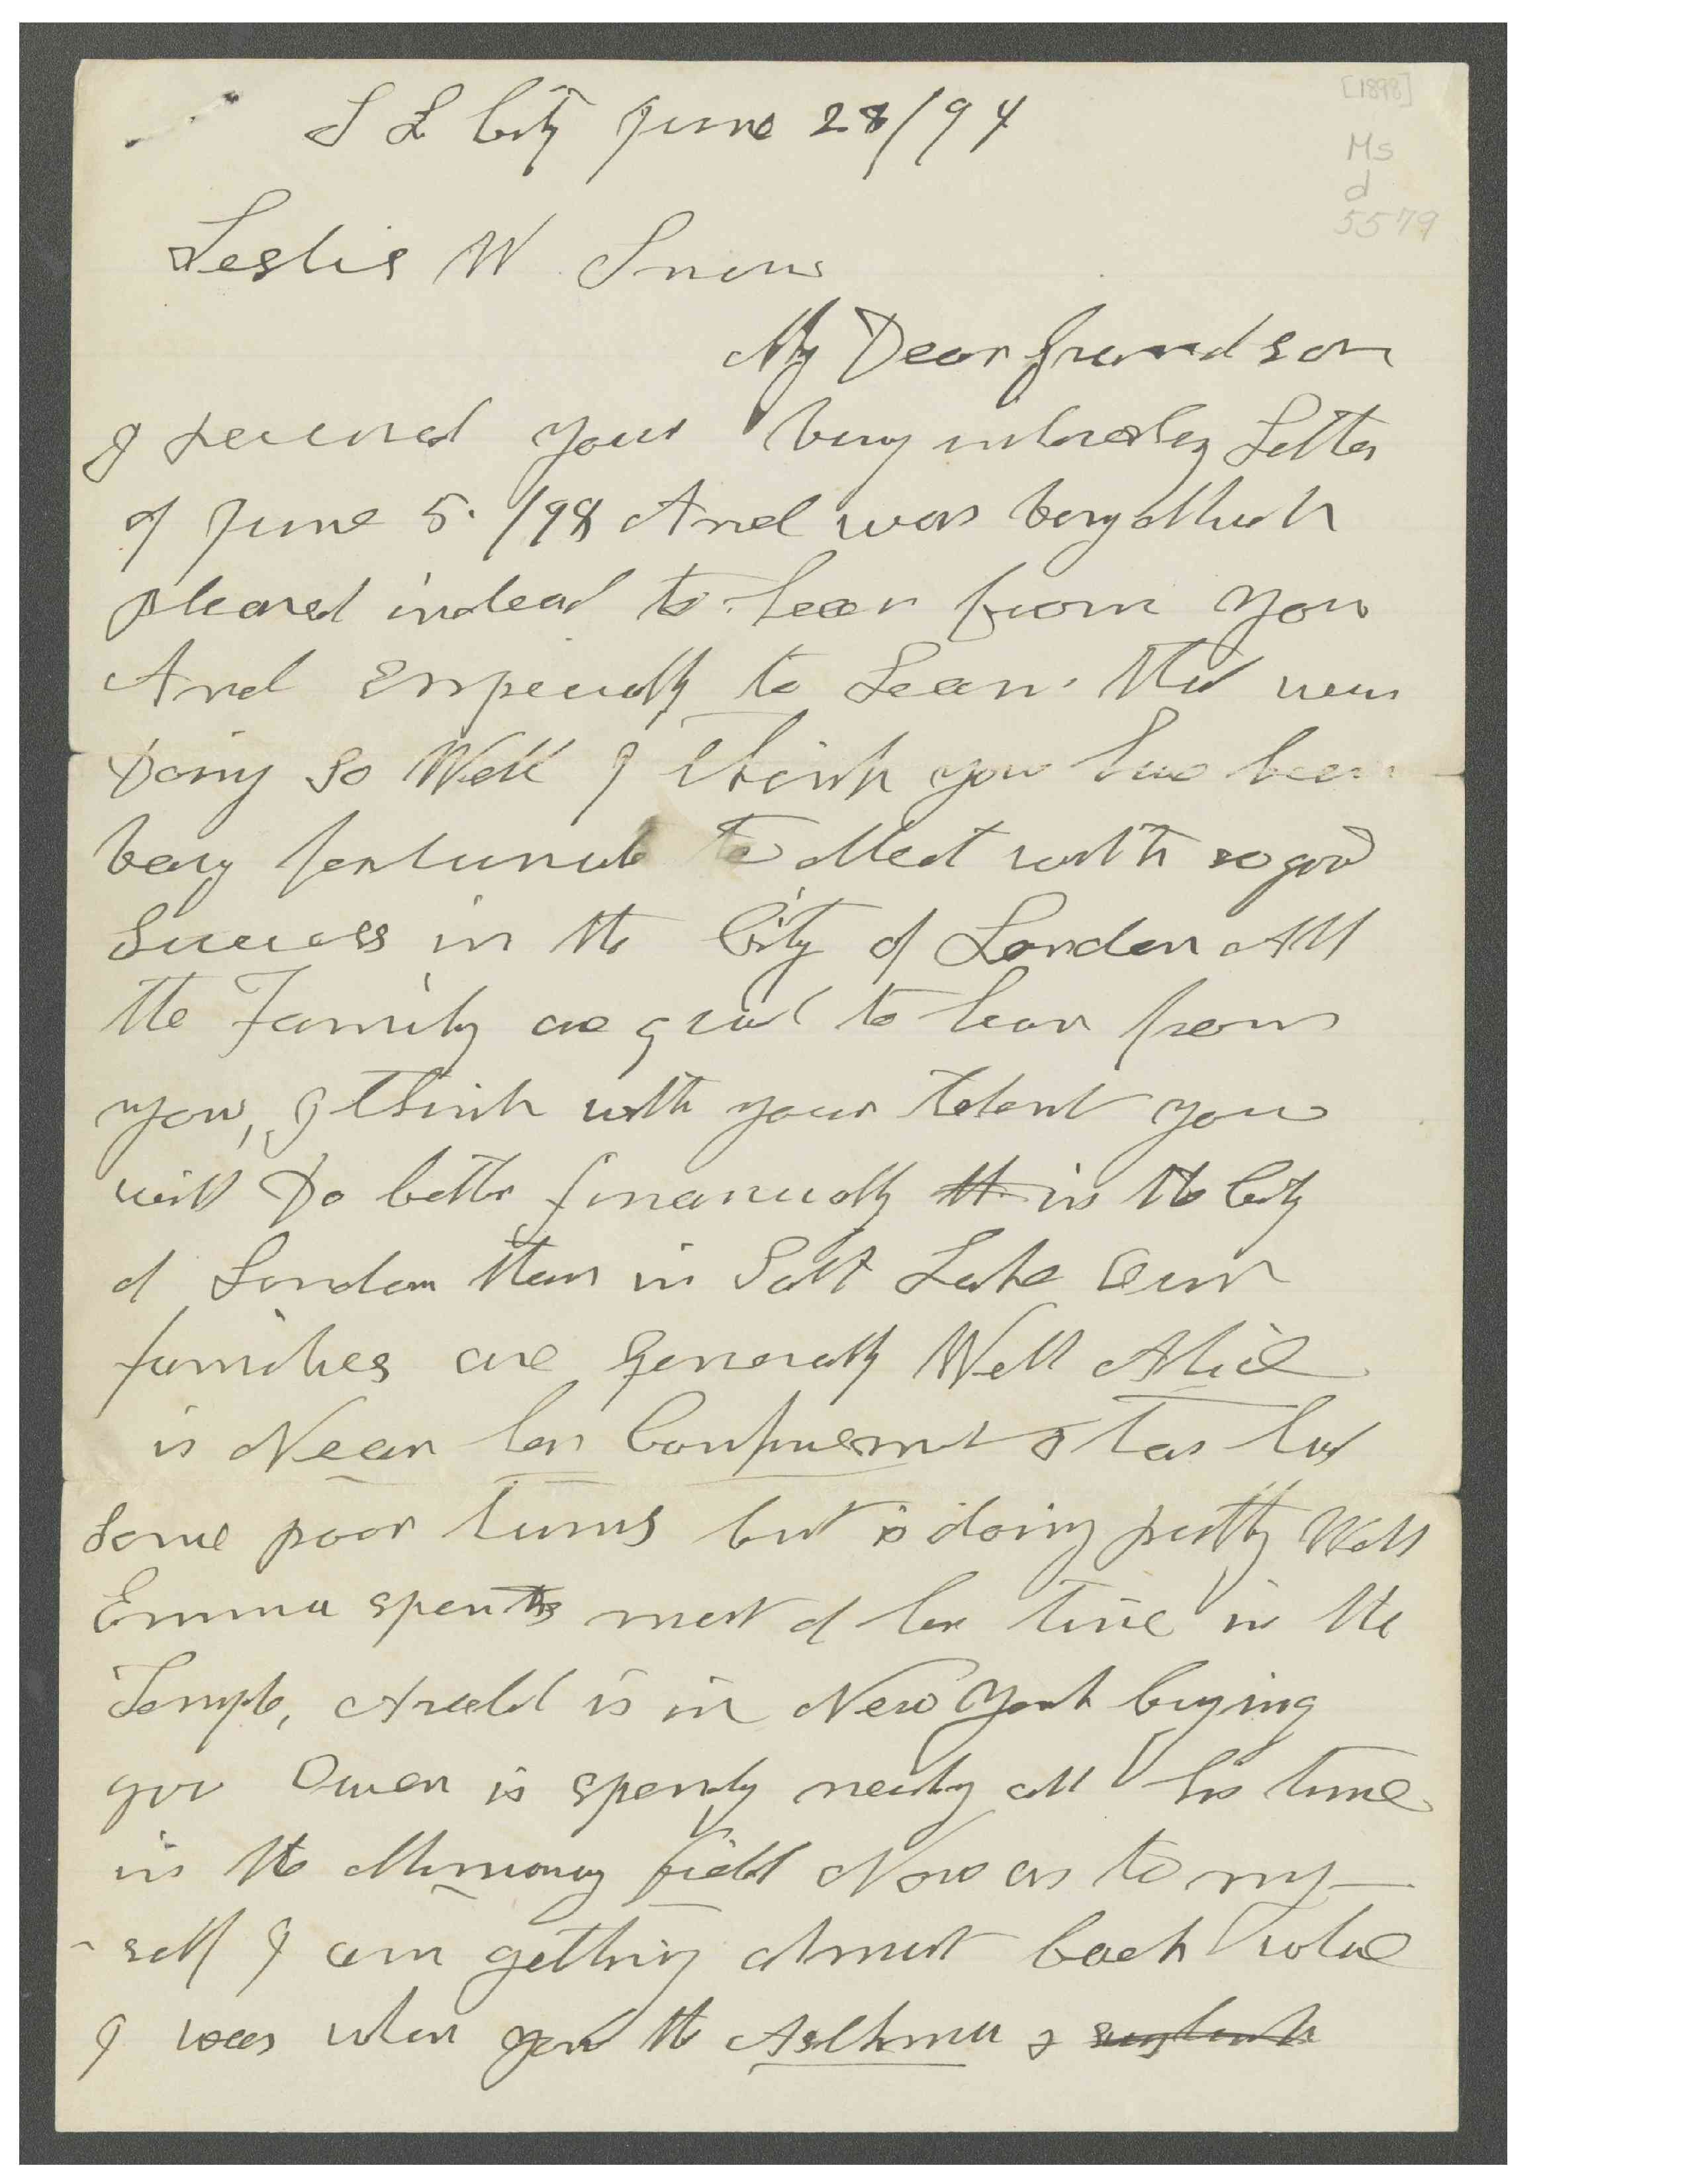 [1898]
Ms
d
5579
S L City June 28/94
Leslie W Snow
My Dear grandson
I received your very interesting Letter
of June 5. /98 And was very Much
pleased indeed to hear from you
And Especially to Learn that you
Doing so Well I think you have been
very fortunate to Meet with so good
Success in the City of London All
the Family are glad to hear from
you, I think with your talent you
will Do better financially in the City
of London than in Salt Lake Our
families are generally Well Alice
is Near her Confinement & has had
some poor turns but is doing pretty Well
Emma spen most of her time in the
Temple, is in New York buying
Owen is spending nearly all his time
in the Missionary field Now as to my-
- self I am getting about back where
I was when you the Asthma &